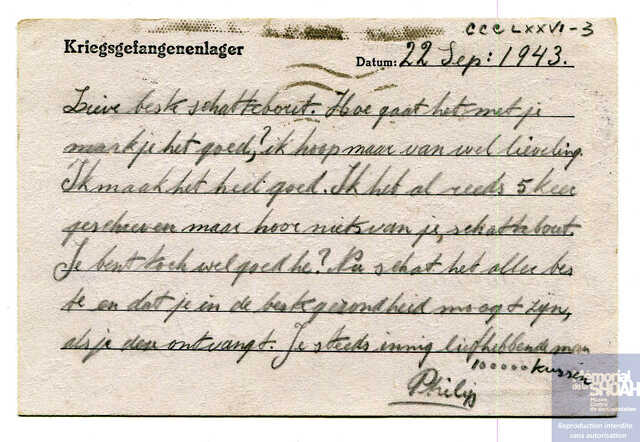 CCCLXXVI-3
Kriegsgefangenenlager
Datum: 22 Sep: 1943.
Lieve beste schattebout. Hoe gaat het met je
maak je het goed? ik hoop maar van wel lieveling.
Ik maak het heel goed. Ik heb al reeds 5 keer
geschreven maar hoor niets van je, schattebout.
Je bent toch wel goed he? Nu schat het aller bes
te en dat je in de beste gezondheid moogt zijn,
als je deze ontvangt. Je steeds innig liefhebbende man
100000 kussen
Philip
Mémorial
de la SHOAH
Musée
Centre
de documentation
Reproduction interdite
sans autorisation